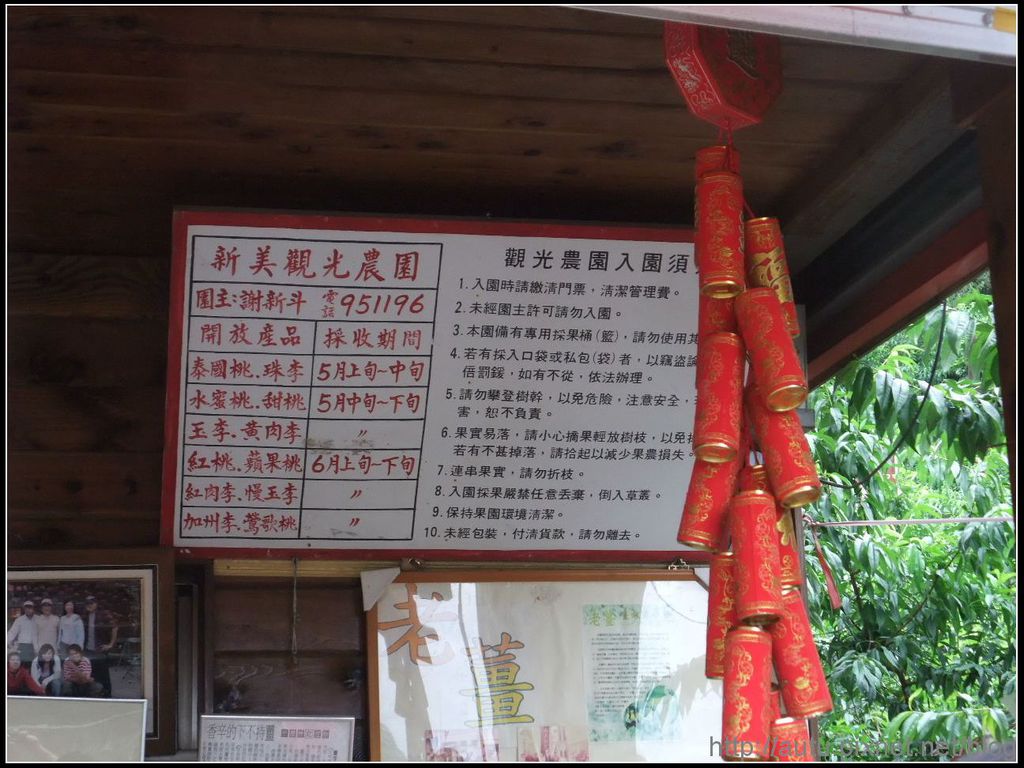 新美觀光農園
園主:謝新斗 電話951196
開放産品 採收期間
泰國桃.珠李 5月上旬~中旬
水蜜桃.甜桃 5月中旬~下旬
玉李.黃肉李 〃
紅桃.蘋果桃 6月上旬~下旬
紅肉李.慢玉李 〃
加州李.鶯歌桃 〃
觀光農園入園須
1. 入園時請繳清門票，清潔管理費。
2. 未經園主許可請勿入園。
3. 本園備有專用採果桶(籃)，請勿使用其
4. 若有採入口袋或私包(袋)者，以竊盜論
倍罰鍰，如有不從，依法辦理。
5. 請勿攀登樹幹，以免危險，注意安全，
害，恕不負責。
6. 果實易落，請小心摘果輕放樹枝，以免
若有不甚掉落，請拾起以減少果農損失。
7. 連串果實，請勿折枝。
8. 入園採果嚴禁任意丟棄，倒入草叢。
9. 保持果園環境清潔。
10. 未經包裝，付清貨款，請勿離去。
老薑
香辛的下不持薑